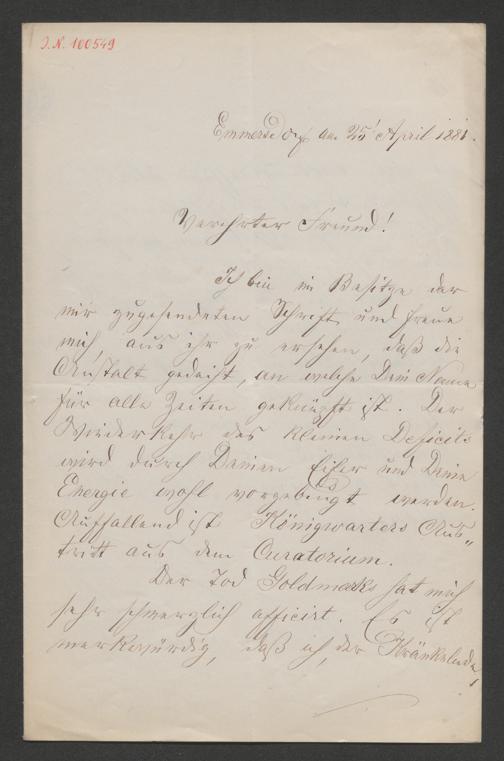 J. N. 100549
Emmersdorf am 25' April 1881.
Verehrter Freund!
Ich bin im Besitze der
mir zugesendeten Schrift und freue
mich, aus ihr zu ersehen, daß die
Anstalt gedeiht, an welche Dein Name
für alle Zeiten geknüpft ist. Der
Wiederkehr des kleinen Deficits
wird durch Deinen Eifer und Deine
Energie wohl vorgebeugt werden.
Auffallend ist Königwarters Aus„
tritt aus dem Curatorium.
Der Tod Goldmarks hat mich
sehr schmerzlich afficirt. Es ist
merkwürdig, daß ich, der Kränkelnde,